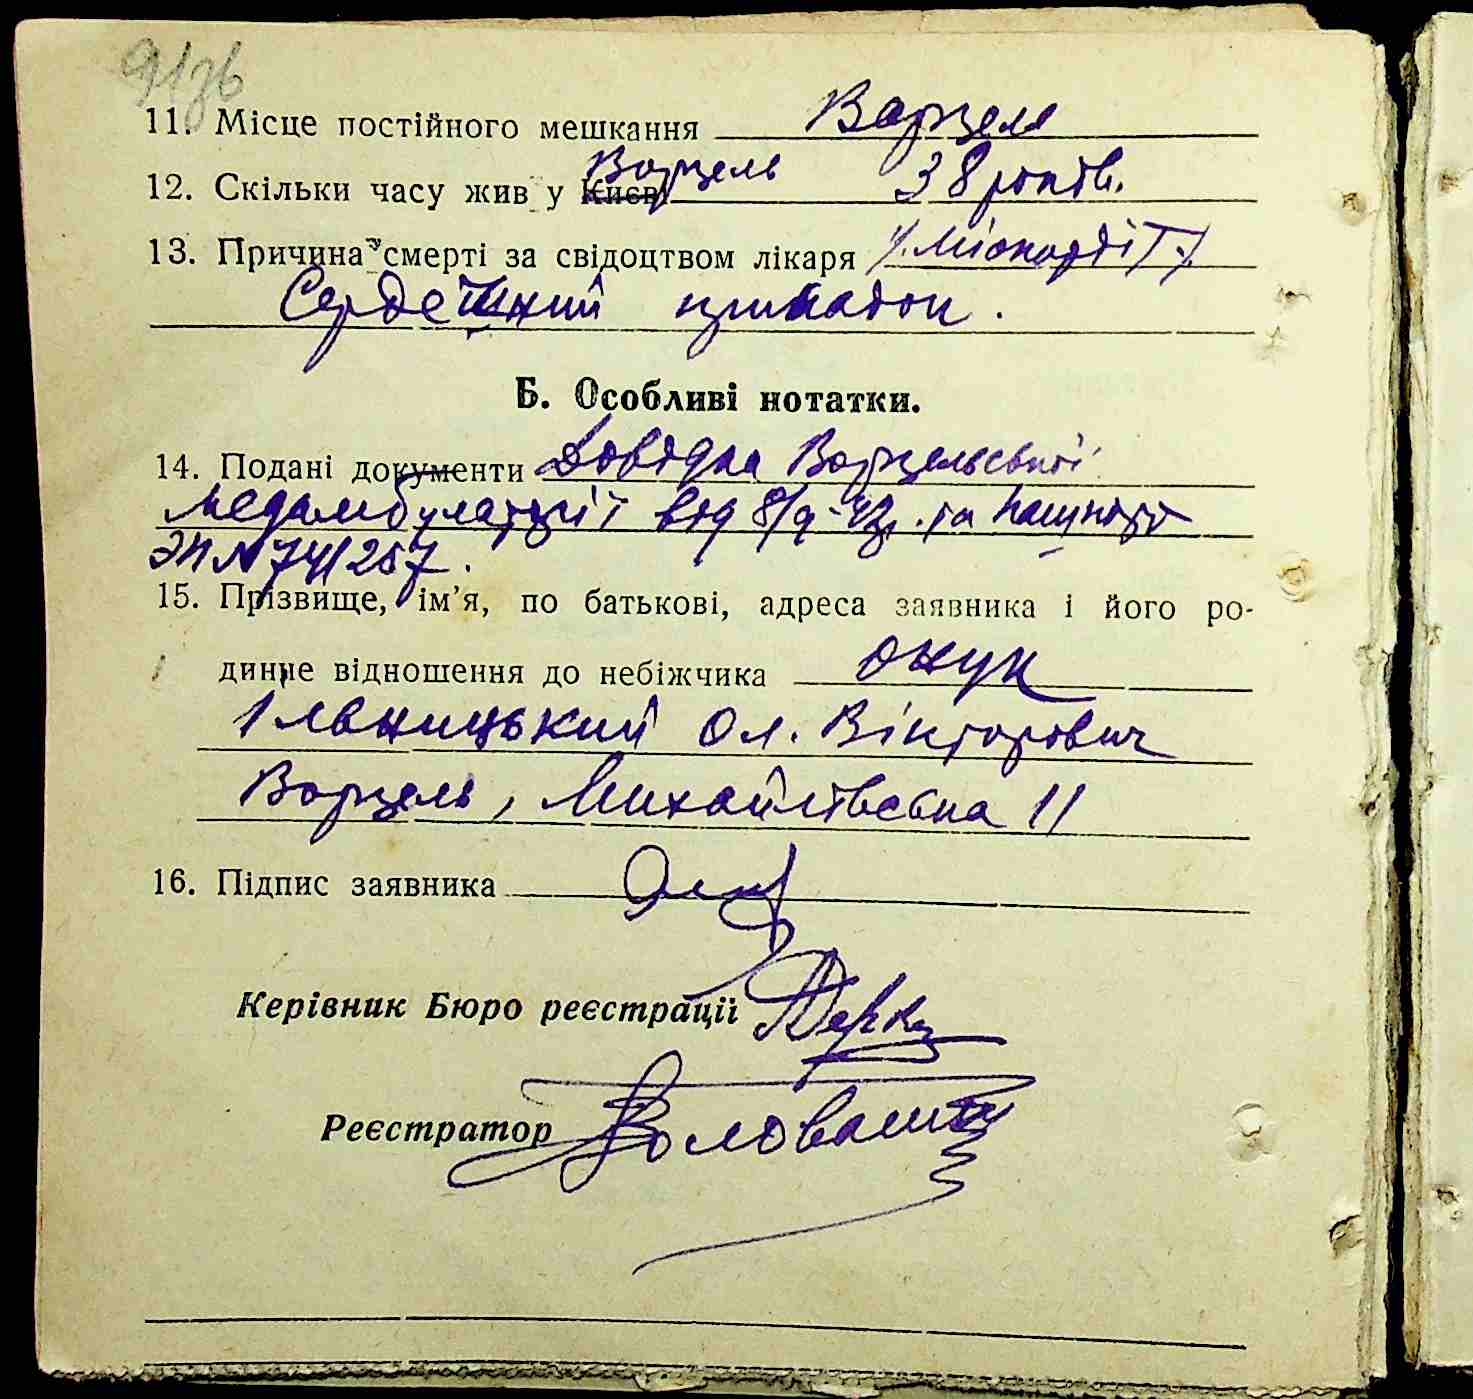 91зв
11. Місце постійного мешкання Ворзель
12. Скільки часу жив у Києві Ворзель 38 років.
13. Причина смерті за свідоцтвом лікаря /.Міокардіт./
Сердешний припадок.
Б. Особливі нотатки.
14. Подані документи Довідка Ворзельської
медамбулаторії від 8/9-42р. та пашпорт
ЭП №741257.
15. Прізвище, ім'я, по батькові, адреса заявника і його ро-
динне відношення до небіжчика онук
Ільницький Ол. Вікторович
Ворзель, Михайлівська 11
16. Підпис заявника
Керівник Бюро реєстрації
Реєстратор